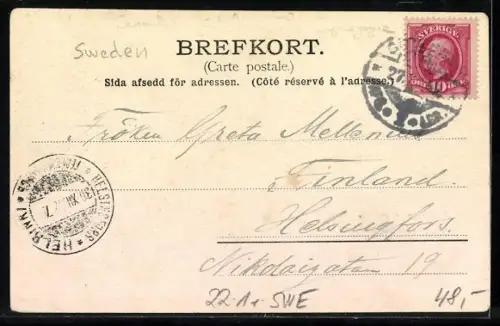 Sweden
BREFKORT.
(Carte postale.)
Sida afsedd för adressen. (Côté réservé à l'adresse.)
SVERIGE
10
Fröken Greta Mellenius
Finland.
Helsingfors.
Nikolaigatan 19
HELSINGFORS
HELSINKI
22·A· SWE
48,-